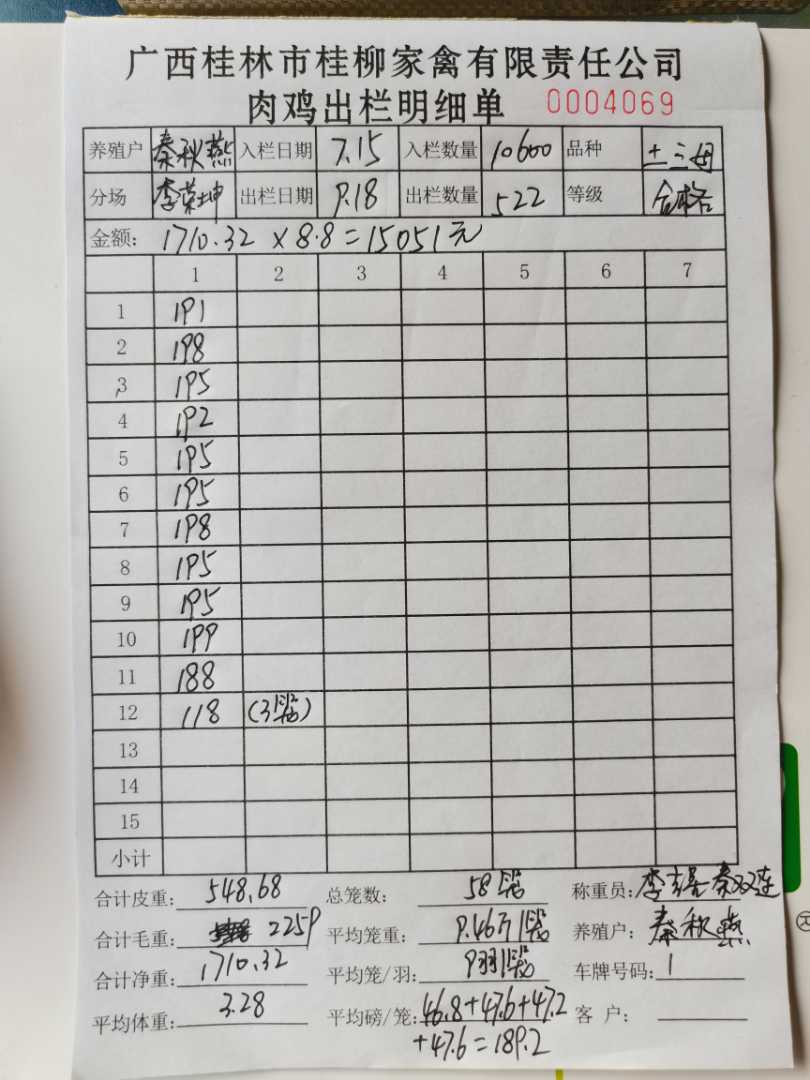 广西桂林市桂柳家禽有限责任公司
肉鸡出栏明细单 0004069
养殖户 秦秋燕 入栏日期 7.15 入栏数量 10600 品种 土三母
分场 李荣坤 出栏日期 9.18 出栏数量 522 等级 合格
金额: 1710.32 × 8.8 = 15051元
1 2 3 4 5 6 7
1 191
2 198
3 195
4 192
5 195
6 195
7 198
8 195
9 195
10 199
11 188
12 118 (3笼)
13
14
15
小计
合计皮重: 548.68 总笼数: 58笼 称重员: 李 秦双连
合计毛重: 2259 平均笼重: 9.46斤/笼 养殖户: 秦秋燕
合计净重: 1710.32 平均笼/羽: 9羽/笼 车牌号码: 1
平均体重: 3.28 平均磅/笼: 46.8+47.6+47.2 客户:
+47.6=189.2